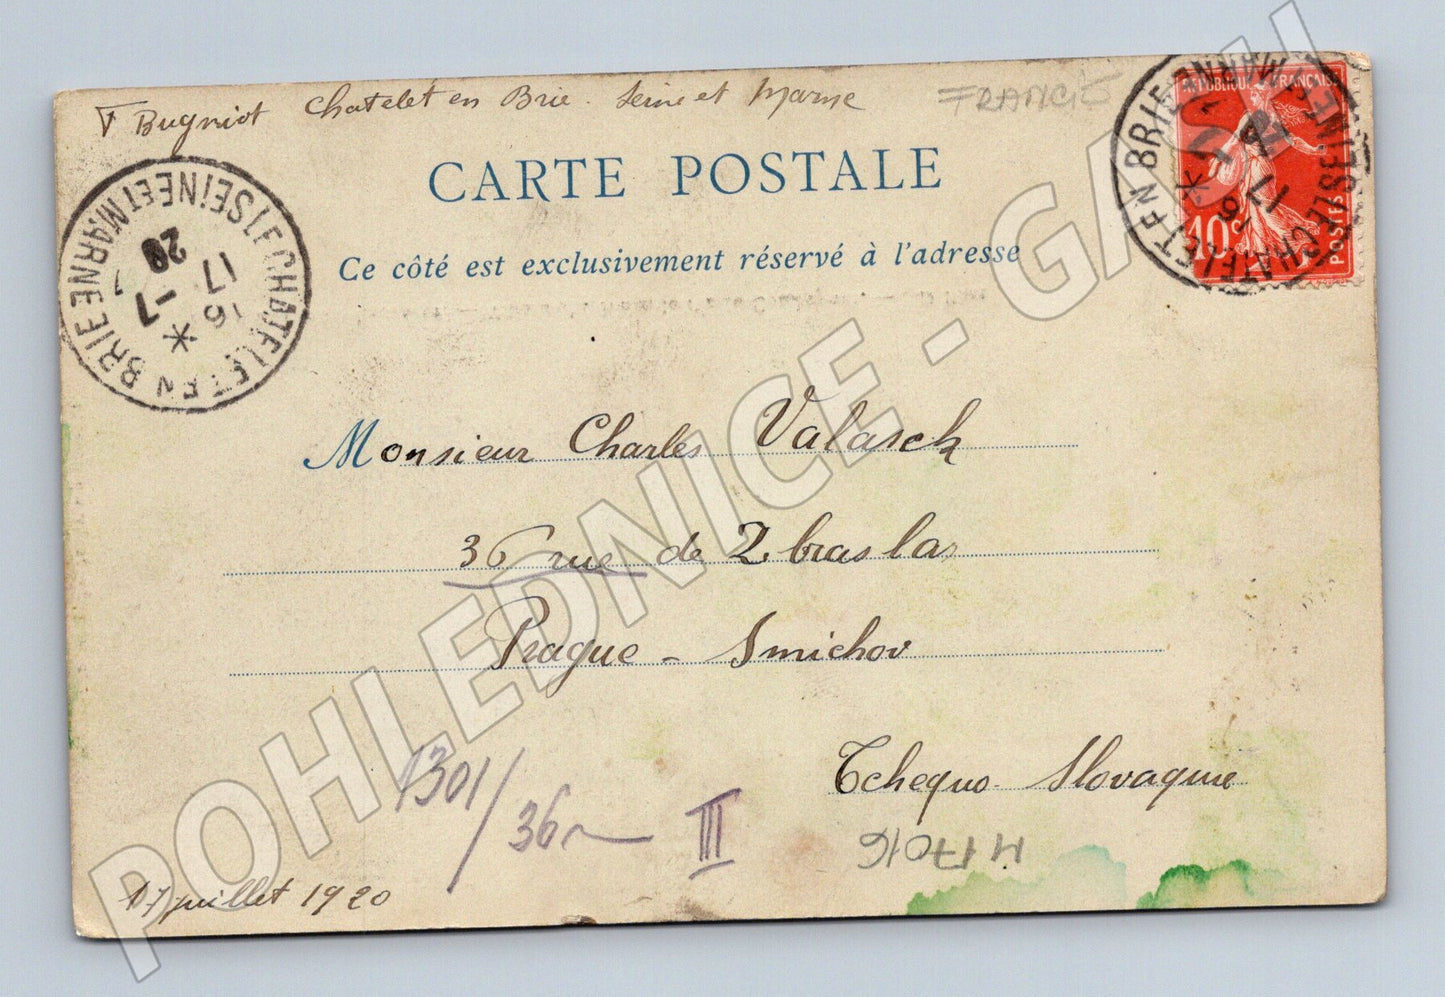 Bugniot Chatelet en Brie. Seine et Marne
FRANCIE
CARTE POSTALE
Ce côté est exclusivement réservé à l'adresse
LE CHATELET EN BRIE (SEINE ET MARNE)
16
17 -7
20
RÉPUBLIQUE FRANÇAISE
10c POSTES
LE CHATELET EN BRIE (SEINE ET MARNE)
16
17
Monsieur Charles Valasek
36 rue de Zbraslav
Prague - Smichov
Tchequo-Slovaquie
1301/36
III
M17016
17 juillet 1920
POHLEDNICE - GASH